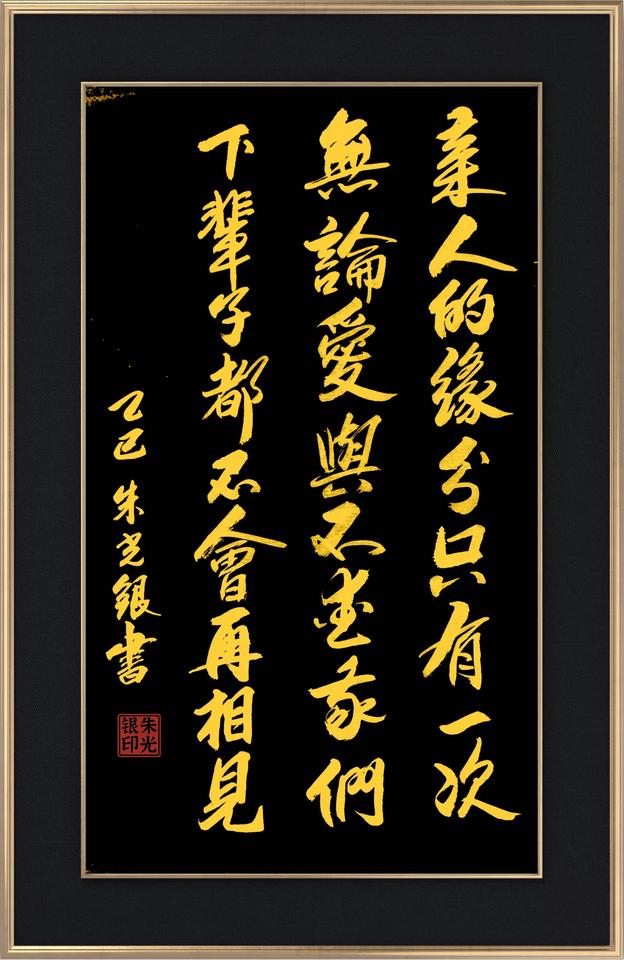 亲人的緣分只有一次
無論愛與不愛我們
下輩子都不會再相見
乙巳 朱光銀書
朱光银印